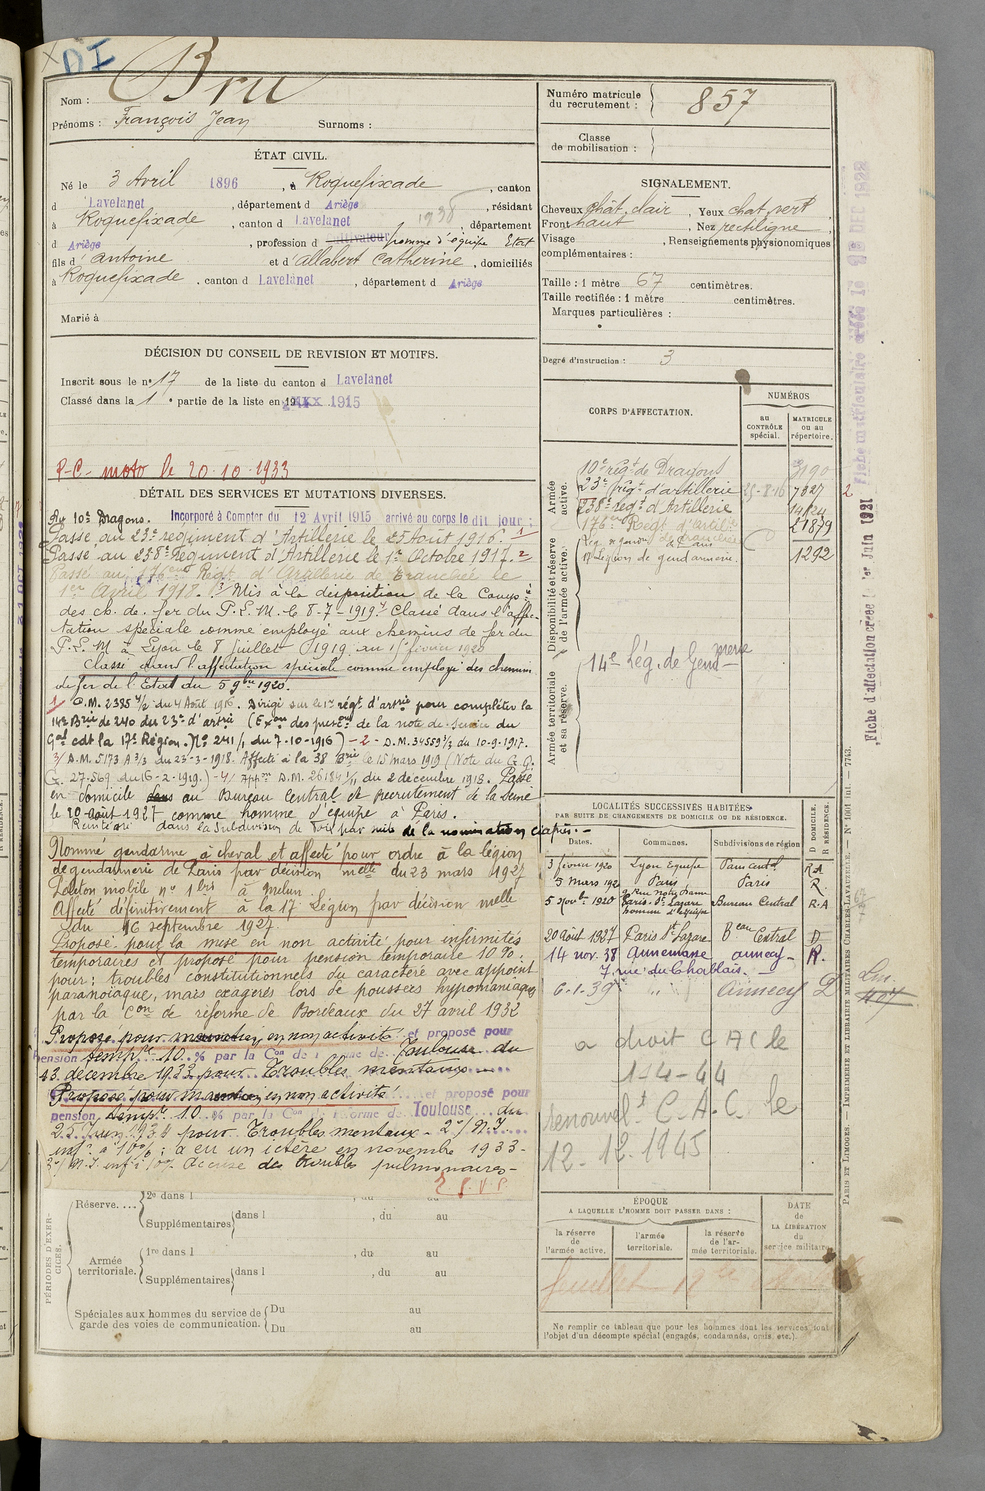 DI
Nom : Bru
Prénoms : François Jean Surnoms :
ÉTAT CIVIL.
Né le 3 Avril 1896, à Roquefixade, canton
d Lavelanet, département d Ariège, résidant
à Roquefixade, canton d Lavelanet 1938, département
d Ariège, profession d cultivateur homme d'équipe Etat
fils d' Antoine et d' Allabert Catherine, domiciliés
à Roquefixade, canton d Lavelanet, département d Ariège
Marié à
DÉCISION DU CONSEIL DE REVISION ET MOTIFS.
Inscrit sous le nº 17 de la liste du canton d Lavelanet
Classé dans la 1e partie de la liste en 1915
R-C- moto le 20.10.1933
DÉTAIL DES SERVICES ET MUTATIONS DIVERSES.
Au 10e Dragons. Incorporé à Compter du 12 Avril 1915 arrivé au corps le dit jour ;
Passé au 23e regiment d'Artillerie le 25 Août 1916. 1
Passé au 238e Regiment d'Artillerie le 1er Octobre 1917. 2
Passé au 176e Regt d'Artillerie de tranchée le
1er Avril 1918. Mis à la disposition de la Compie
des ch. de fer du P.L.M. le 8-7-1919. Classé dans l'affec-
tation spéciale comme employé aux chemins de fer du
P.L.M à Lyon le 8 juillet 1919 au 1er février 1920
Classé dans l'affectation spéciale comme employé des chemins
de fer de l'Etat du 5 9bre 1920.
1 D.M. 2385 1/2 du 4 Août 1916. Dirigé sur le 1er régt d'artrie pour compléter la
14e Brie de 240 du 23e d'artrie (Exon des presons de la note de service du
Gal cdt la 17e Région. No 241/1 du 7-10-1916) -2- D.M. 34559 1/3 du 10-9-1917.
3/ D.M. 5173 A 3/3 du 23-3-1918. Affecté à la 38 Brie le 15 mars 1919 (Note du G.Q.
G. 27.569 du 16-2-1919.) -4/ Appon D.M. 26184 1/1 du 2 decembre 1918. Passé
en domicile dans au Bureau Central de recrutement de la Seine
le 20 août 1927 comme homme d'équipe à Paris.
Réintégré dans la Subdivision de Foix par suite de la nomination ci après.-
Nommé gendarme à cheval et affecté pour ordre à la légion
de gendarmerie de Paris par décision melle du 23 mars 1927
Peloton mobile nº 1 bis à Melun.
Affecté définitivement à la 17 Légion par décision melle
du 16 septembre 1927.
Proposé pour la mise en non activité pour infirmités
temporaires et proposé pour pension temporaire 10 %.
pour : troubles constitutionnels du caractère avec appoint
paranoïaque, mais exagérés lors de poussées hypomaniaques
par la Con de réforme de Bordeaux du 27 avril 1932
Proposé pour maintien en non activité et proposé pour
pension tempre 10 % par la Con de réforme de Toulouse du
13 décembre 1933 pour Troubles mentaux
Proposé pour maintien en non activité et proposé pour
pension tempre 10 % par la Con de réforme de Toulouse du
25 Juin 1934 pour Troubles mentaux - 2º/ N.I.
infre à 10% : a eu un ictère en novembre 1933 -
3º/ N.I inf à 10% Accuse des troubles pulmonaires -
T.S.V.P.
PÉRIODES D'EXERCICES.
Réserve.... 2e dans l , du au
Supplémentaires dans l , du au
Armée territoriale. 1re dans l , du au
Supplémentaires dans l , du au
Spéciales aux hommes du service de garde des voies de communication. Du au
Du au
Numéro matricule du recrutement : 857
Classe de mobilisation :
SIGNALEMENT.
Cheveux chât. clair, Yeux chat. vert,
Front haut, Nez rectiligne,
Visage , Renseignements physionomiques
complémentaires :
Taille : 1 mètre 67 centimètres.
Taille rectifiée : 1 mètre centimètres.
Marques particulières :
Degré d'instruction : 3
CORPS D'AFFECTATION.
NUMÉROS
au CONTRÔLE spécial.
MATRICULE ou au répertoire.
Armée active.
10e régt de Dragons 3190
23e régt d'artillerie 25-8-16 7827 2
238e régt d'Artillerie
176e Regt d'artill. de tranchée 21879
Disponibilité et réserve de l'armée active.
17 Légion de gendarmerie. 1292
Armée territoriale et sa réserve.
14e Lég. de Gendmerie
LOCALITÉS SUCCESSIVES HABITÉES
PAR SUITE DE CHANGEMENTS DE DOMICILE OU DE RÉSIDENCE.
Dates. Communes. Subdivisions de région D DOMICILE. R RÉSIDENCE.
3 février 1920 Lyon Equipe Paris cental R.A
5 Mars 192 Paris Paris R.
5 Novbre 1920 Paris-St Lazare Bureau Central R.A
homme d'équipe
20 août 1927 Paris St Lazare Beau Central D
14 nov. 38 Annemasse Annecy - R.
7 rue du Chablais.
6-1-39 " " Annecy D
a droit C A C le
1-4-44
renouvelt C.A.C. le
12.12.1945
ÉPOQUE
A LAQUELLE L'HOMME DOIT PASSER DANS :
la réserve de l'armée active.
l'armée territoriale.
la réserve de l'armée territoriale.
DATE de LA LIBÉRATION du service militaire
Ne remplir ce tableau que pour les hommes dont les services font
l'objet d'un décompte spécial (engagés, condamnés, omis, etc.).
Fiche d'affectation créée le 1er Juin 1921
PARIS ET LIMOGES. — IMPRIMERIE ET LIBRAIRIE MILITAIRES CHARLES-LAVAUZELLE. — Nº 1001 int. — 7743.